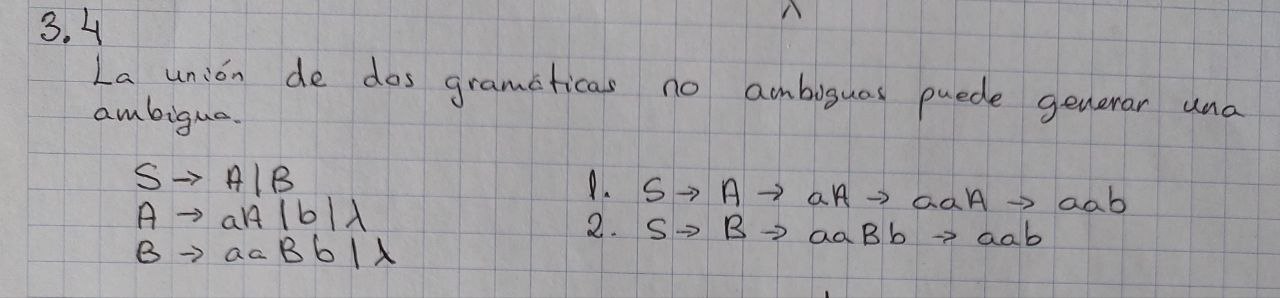 λ
3.4
La unión de dos gramáticas no ambiguas puede generar una
ambigua.
S → A|B
A → aA|b|λ
B → aaBb|λ
1. S → A → aA → aaA → aab
2. S → B → aaBb → aab